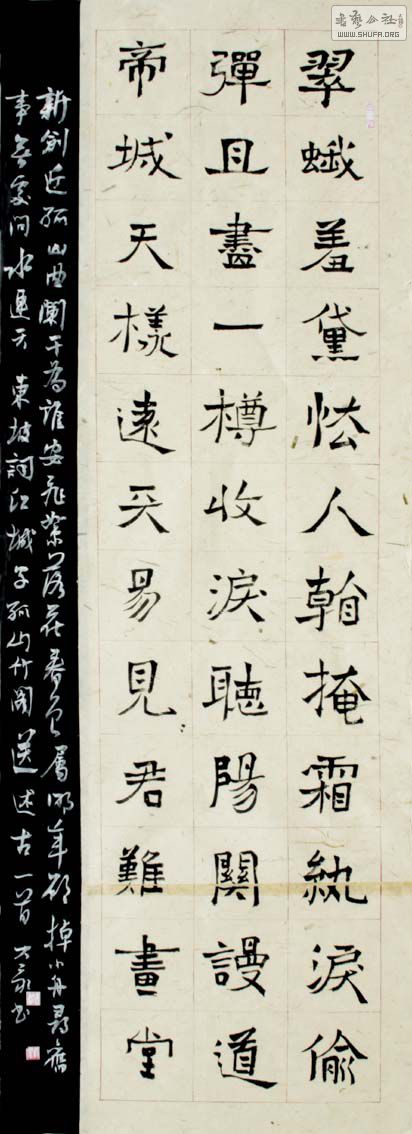 書藝公社
WWW.SHUFA.ORG
翠蛾羞黛怯人看掩霜紈淚偷
彈且盡一樽收淚聽陽關謾道
帝城天樣遠天易見君難畫堂
新創近孤山曲闌干為誰安飛絮落花春色屬明年欲棹小舟尋舊
事無處問水連天 東坡詞江城子孤山竹閣送述古一首 书